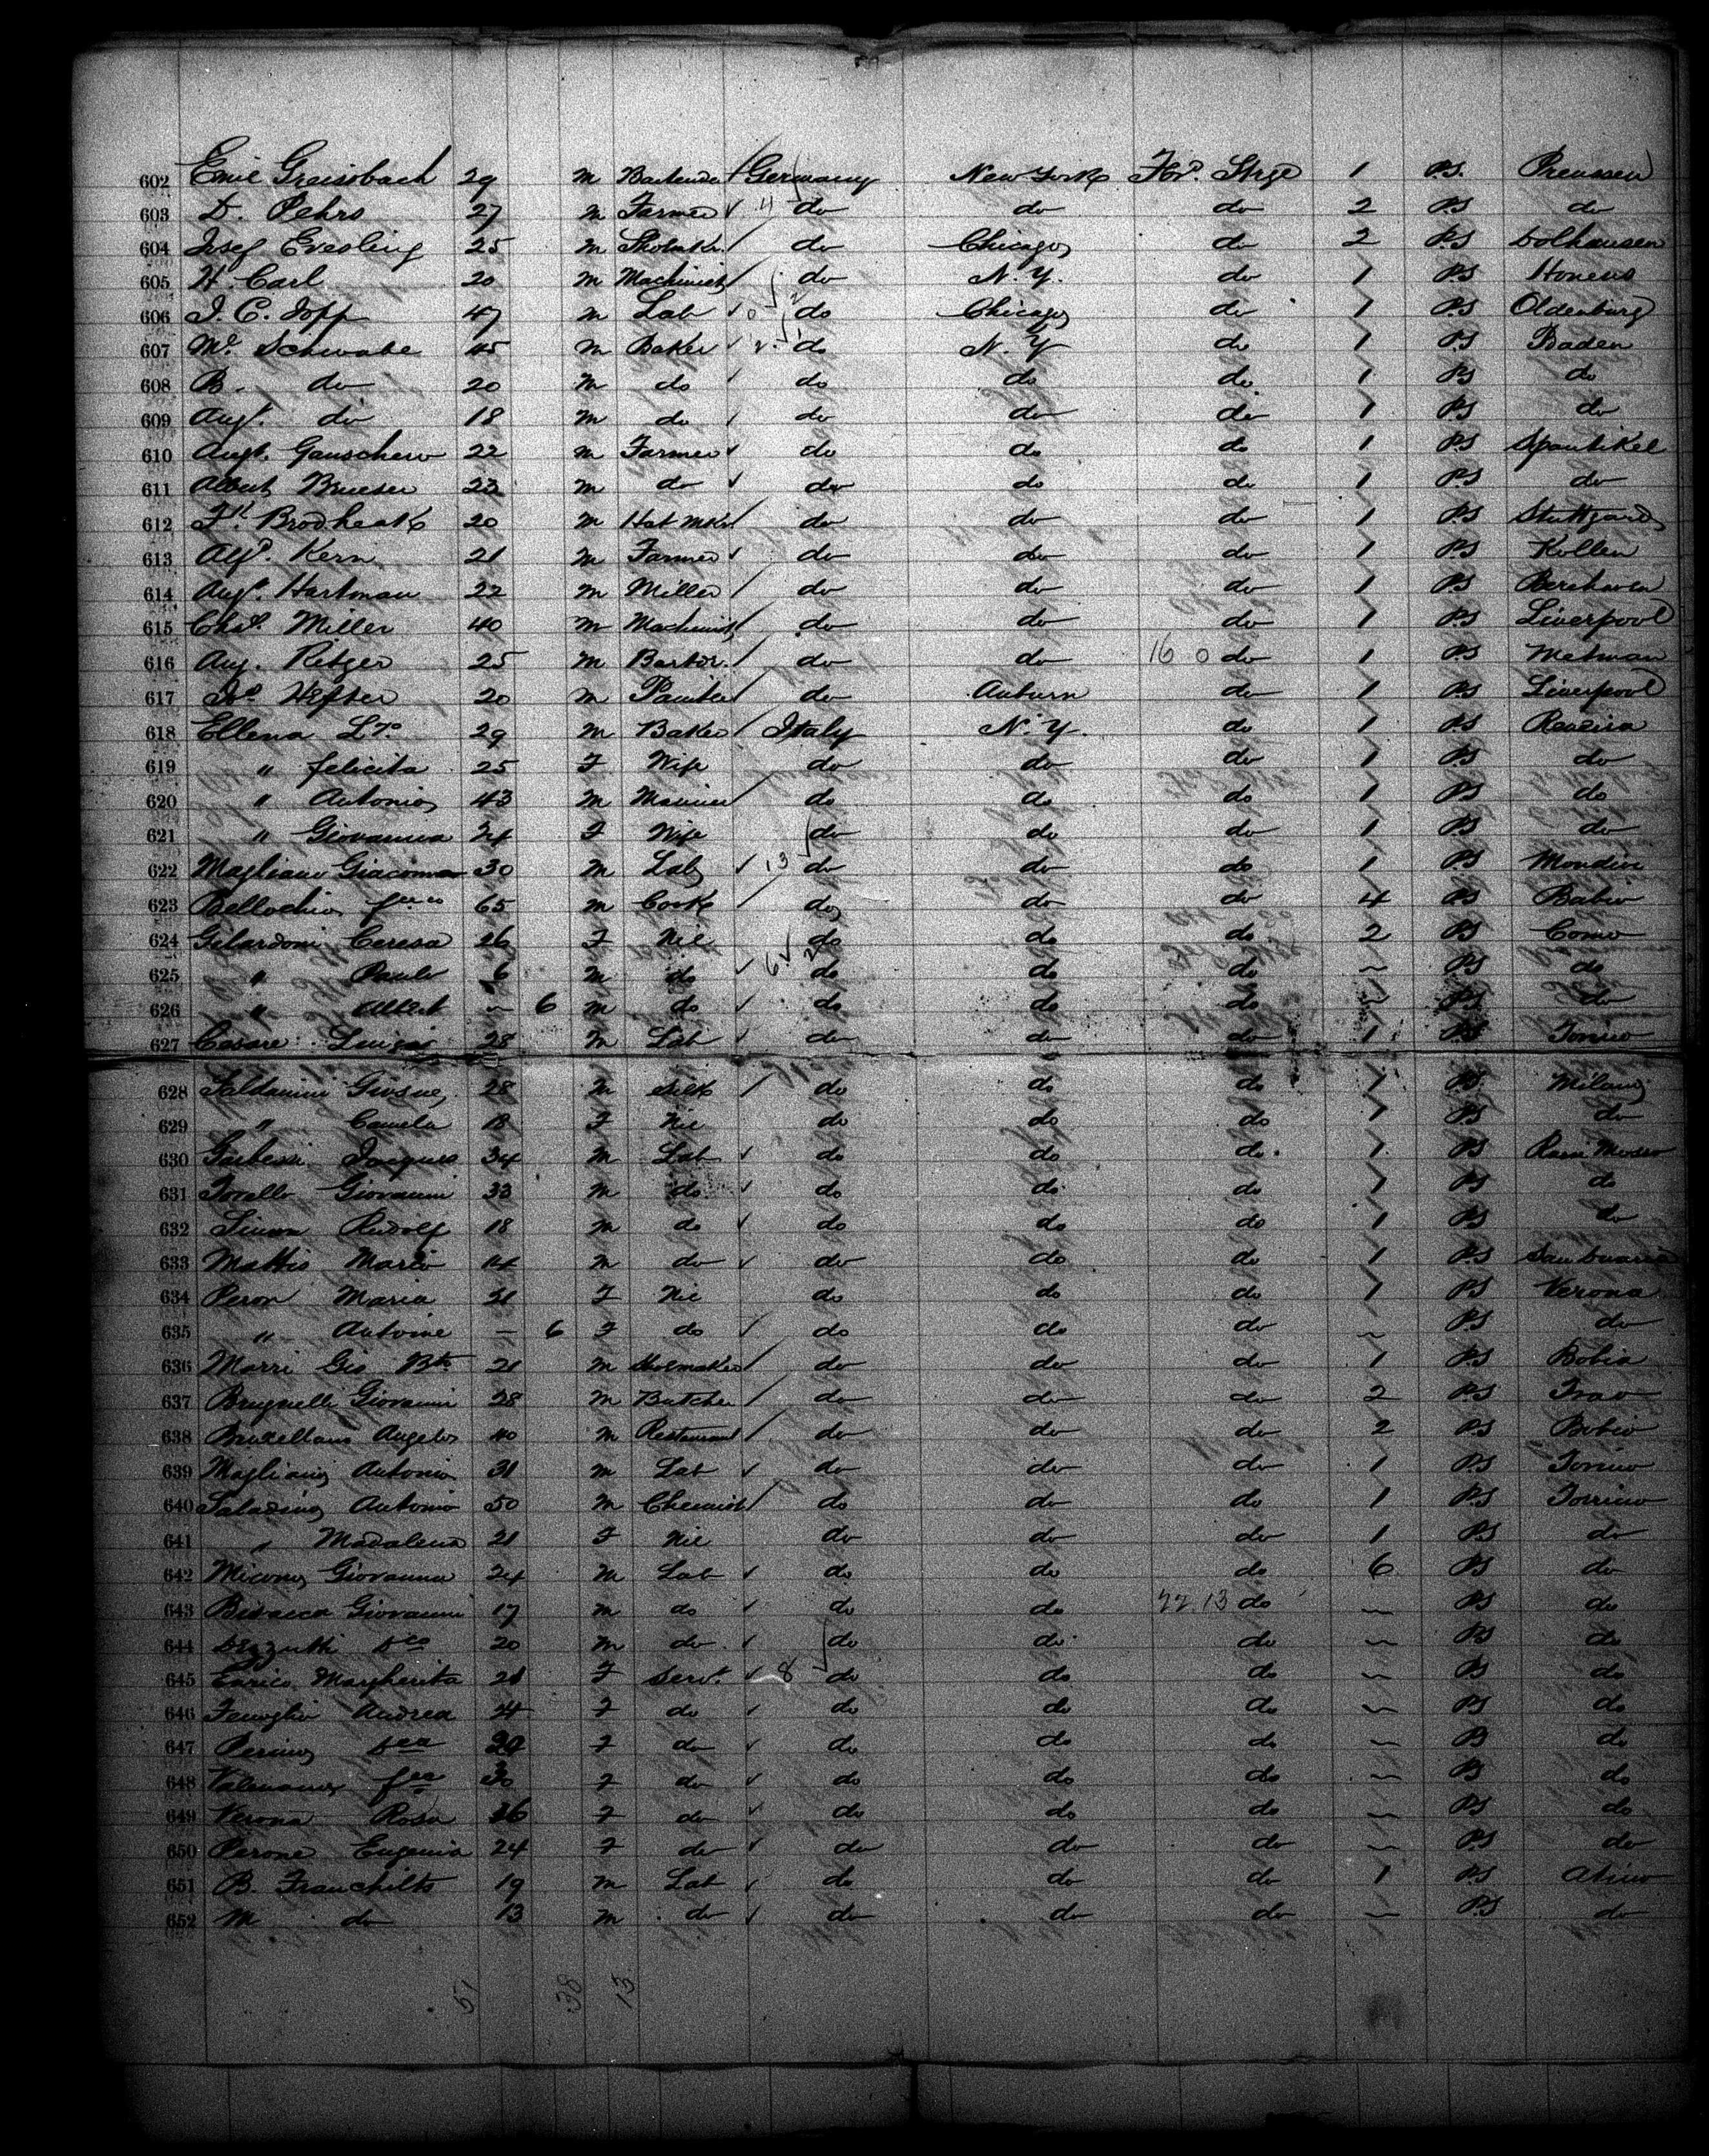 602 Emil Greisbach 29 M Bartender Germany New York For. Strge 1 P.S. Preussen
603 D. Pehrs 27 M Farmer 4 do do do 2 P.S do
604 Josef Evesling 25 M Shoemkr. do Chicago do 2 P.S Dolhausen
605 H. Carl 20 M Machinist do N.Y. do 1 P.S
606 J. C. Jopp 47 M Lab 0 do Chicago do 1 P.S Oldenburg
607 Schwabe 45 M Baker 2 do N.Y do 1 P.S Baden
608 B. do 20 M do do do do 1 PS do
609 Augt. do 18 M do do do do 1 P.S do
610 Augt. Gauschew 22 M Farmer do do do 1 P.S
611 Albert Brueser 23 M do do do do 1 P.S do
612 20 M Hat Mkr do do do 1 P.S Stuttgard
613 Alfd. Kern 21 M Farmer do do do 1 P.S Kollen
614 Augt. Hartman 22 M Miller do do do 1 P.S
615 Chas. Miller 40 M Machinist do do do 1 P.S Liverpool
616 Aug. Retger 25 M Bartdr. do do 16 0 do 1 P.S Metman
617 Hefter 20 M Painter do Auburn do 1 P.S Liverpool
618 Ellena 29 M Baker Italy N.Y. do 1 P.S
619 " felicita 25 F Wife do do do 1 P.S do
620 " Antonio 43 M Mariner do do do 1 PS do
621 " Giovanna 24 F Wife do do do 1 P.S do
622 Magliano Giacomo 30 M Lab 13 do do do 1 P.S
623 Bellochio 65 M Cook do do do 4 PS Babio
624 Gelardoni Ceresa 26 F Nil do do do 2 PS Como
625 " Paulo 6 M do 6 do do do ~ PS do
626 " Albert ~ 6 M do do do do ~ PS do
627 Cesare Luigi 28 M Lab do do do 1 PS Torino
628 Saldanini Giosue 28 M Silk do do do 1 P.S. Milano
629 " Camela 18 F Nil do do do 1 P.S do
630 34 M Lab do do do. 1 PS
631 Torello Giovanni 33 M do do do do 1 PS do
632 Simon Rudolf 18 M do do do do 1 PS do
633 Mattis Mario 14 M do do do do 1 P.S
634 Peron Maria 21 F Nil do do do 1 P.S Verona
635 " Antoine — 6 F do do do do ~ P.S do
636 Marri Gio Bta 21 M Shoemaker do do do 1 P.S Bobio
637 Brugnelli Giovanni 28 M Butcher do do do 2 P.S
638 Angelo 40 M Restaurant do do do 2 P.S Bobio
639 Magliano Antonio 31 M Lab do do do 1 P.S Torino
640 Saladino Antonio 50 M Chemist do do do 1 P.S Torrino
641 " Madalena 21 F Nil do do do 1 P.S do
642 Micono Giovanna 24 M Lab do do do 6 PS do
643 Giovanni 17 M do do do 22 13 do ~ PS do
644 20 M do do do do ~ PS do
645 Enrico Margherita 21 F Servt. 8 do do do ~ PS do
646 Fenoglio Andrea 24 F do do do do ~ PS do
647 Perino F do do do do ~ PS do
648 F do do do do ~ PS do
649 Verona Rosa 26 F do do do do ~ P.S do
650 Perone Eugenia 24 F do do do do ~ P.S do
651 B. Franchilto 19 M Lab do do do 1 P.S
652 M do 13 M do do do do — P.S do
51 38 13